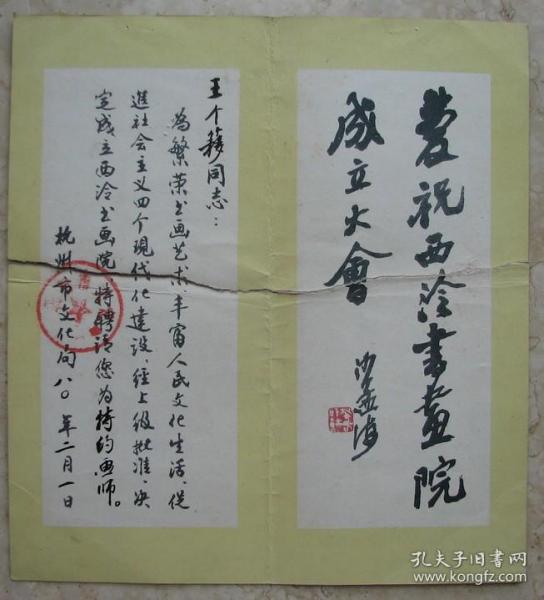 慶祝西泠書畫院
成立大會
沙孟海
王个簃同志：
为繁荣书画艺术，丰富人民文化生活，促
進社会主义四个現代化建設，经上级批准，决
定成立西泠书画院，特聘请您为特约画师。
杭州市文化局八〇年二月一日
孔夫子旧书网
www.kongfz.com